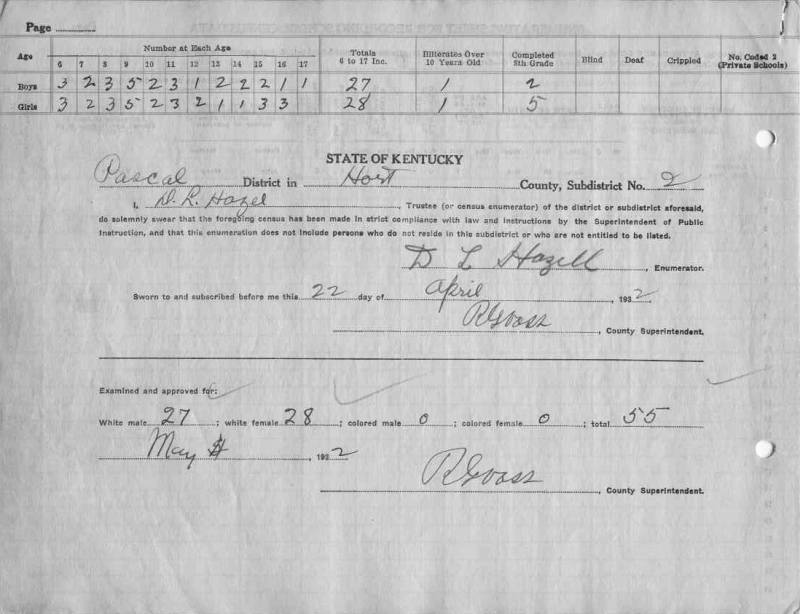 Page
Age Number at Each Age Totals 6 to 17 Inc. Illiterates Over 10 Years Old Completed 8th Grade Blind Deaf Crippled No. Coded 2 (Private Schools)
6 7 8 9 10 11 12 13 14 15 16 17
Boys 3 2 3 5 2 3 1 2 2 2 1 1 27 1 2
Girls 3 2 3 5 2 3 2 1 1 3 3 28 1 5
STATE OF KENTUCKY
Pascal District in Hart County, Subdistrict No. 2
I, D. L. Hazel, Trustee (or census enumerator) of the district or subdistrict aforesaid,
do solemnly swear that the foregoing census has been made in strict compliance with law and instructions by the Superintendent of Public
Instruction, and that this enumeration does not include persons who do not reside in this subdistrict or who are not entitled to be listed.
D L Hazell, Enumerator.
Sworn to and subscribed before me this 22 day of April, 1932
, County Superintendent.
Examined and approved for:
White male 27; white female 28; colored male 0; colored female 0; total 55
May, 1932
, County Superintendent.